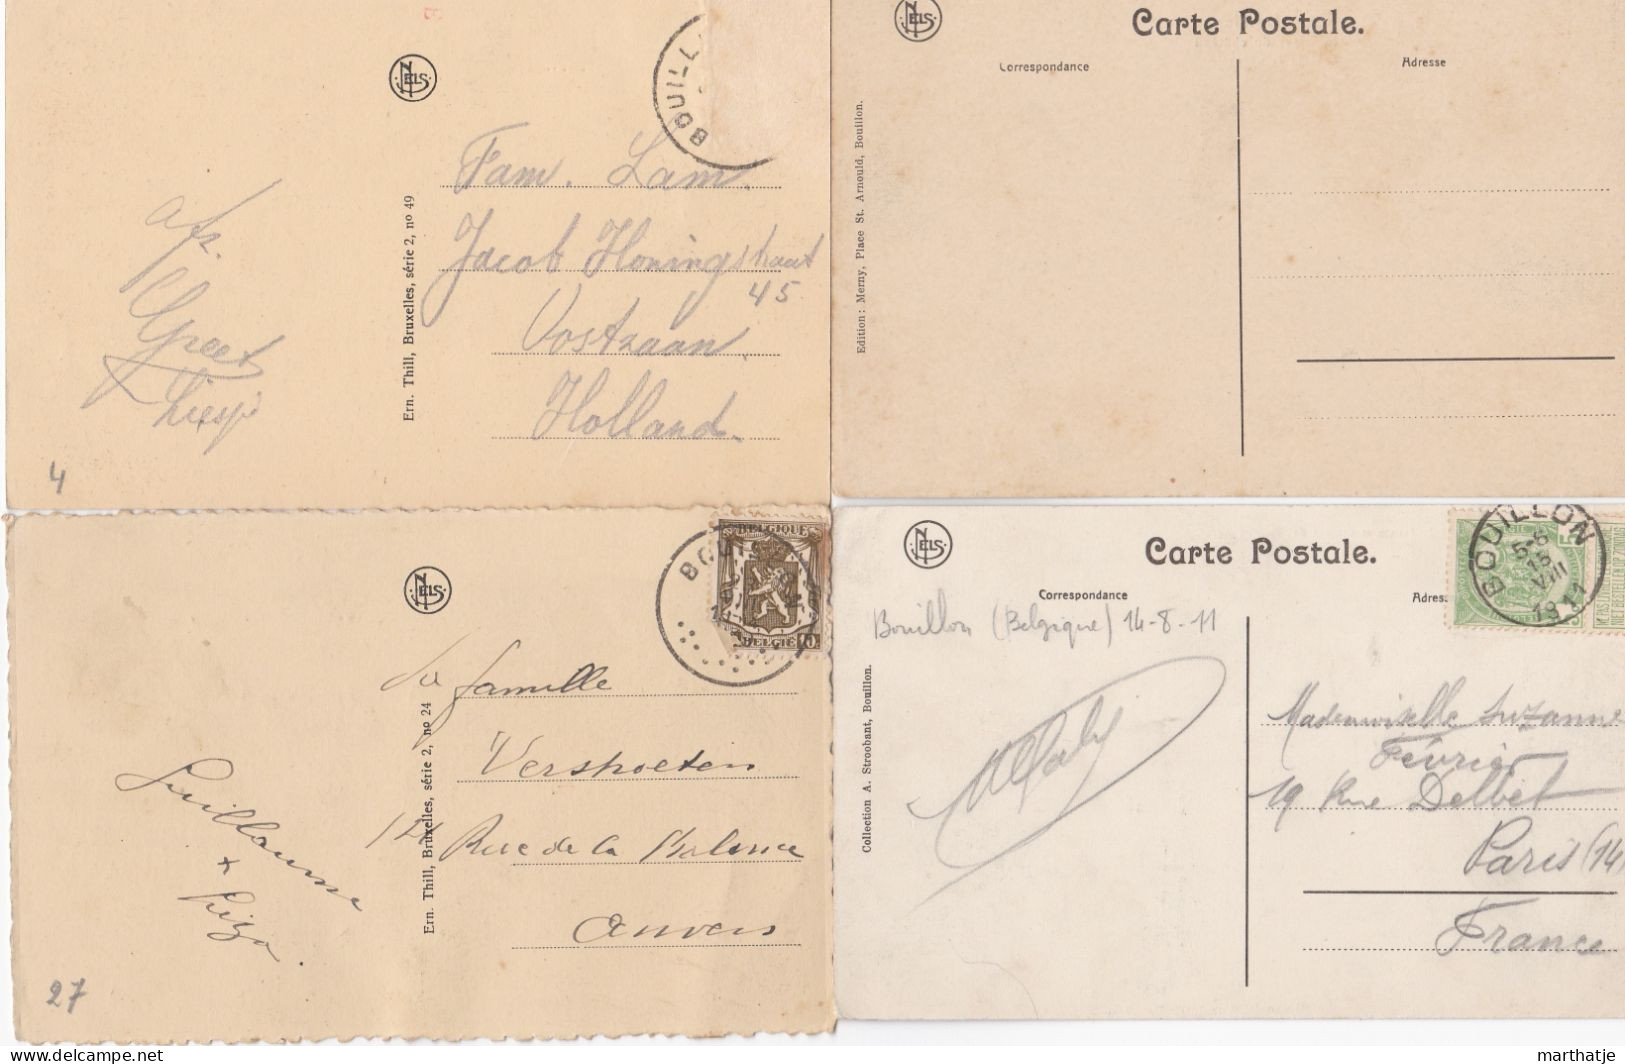 NELS
BOUILL
Fam. Lam.
Jacob Honingstraat
45
Oostzaan.
Holland.
afz.
Greet
Ern. Thill, Bruxelles, série 2, no 49
4
NELS
Carte Postale.
Correspondance
Adresse
Edition: Merny, Place St. Arnould, Bouillon.
NELS
BELGIQUE
BELGIE
BOUILLON
La famille
Rue de la Balance
Anvers
Guillaume
+
Liza.
Ern. Thill, Bruxelles, série 2, no 24
27
NELS
Carte Postale.
Correspondance
Adres
BOUILLON
5-6
15
VIII
1911
Bouillon (Belgique) 14-8-11
Mademoiselle Suzanne
Février
19 Rue Delbet
Paris (14
France
Collection A. Stroobant, Bouillon.
marthatje